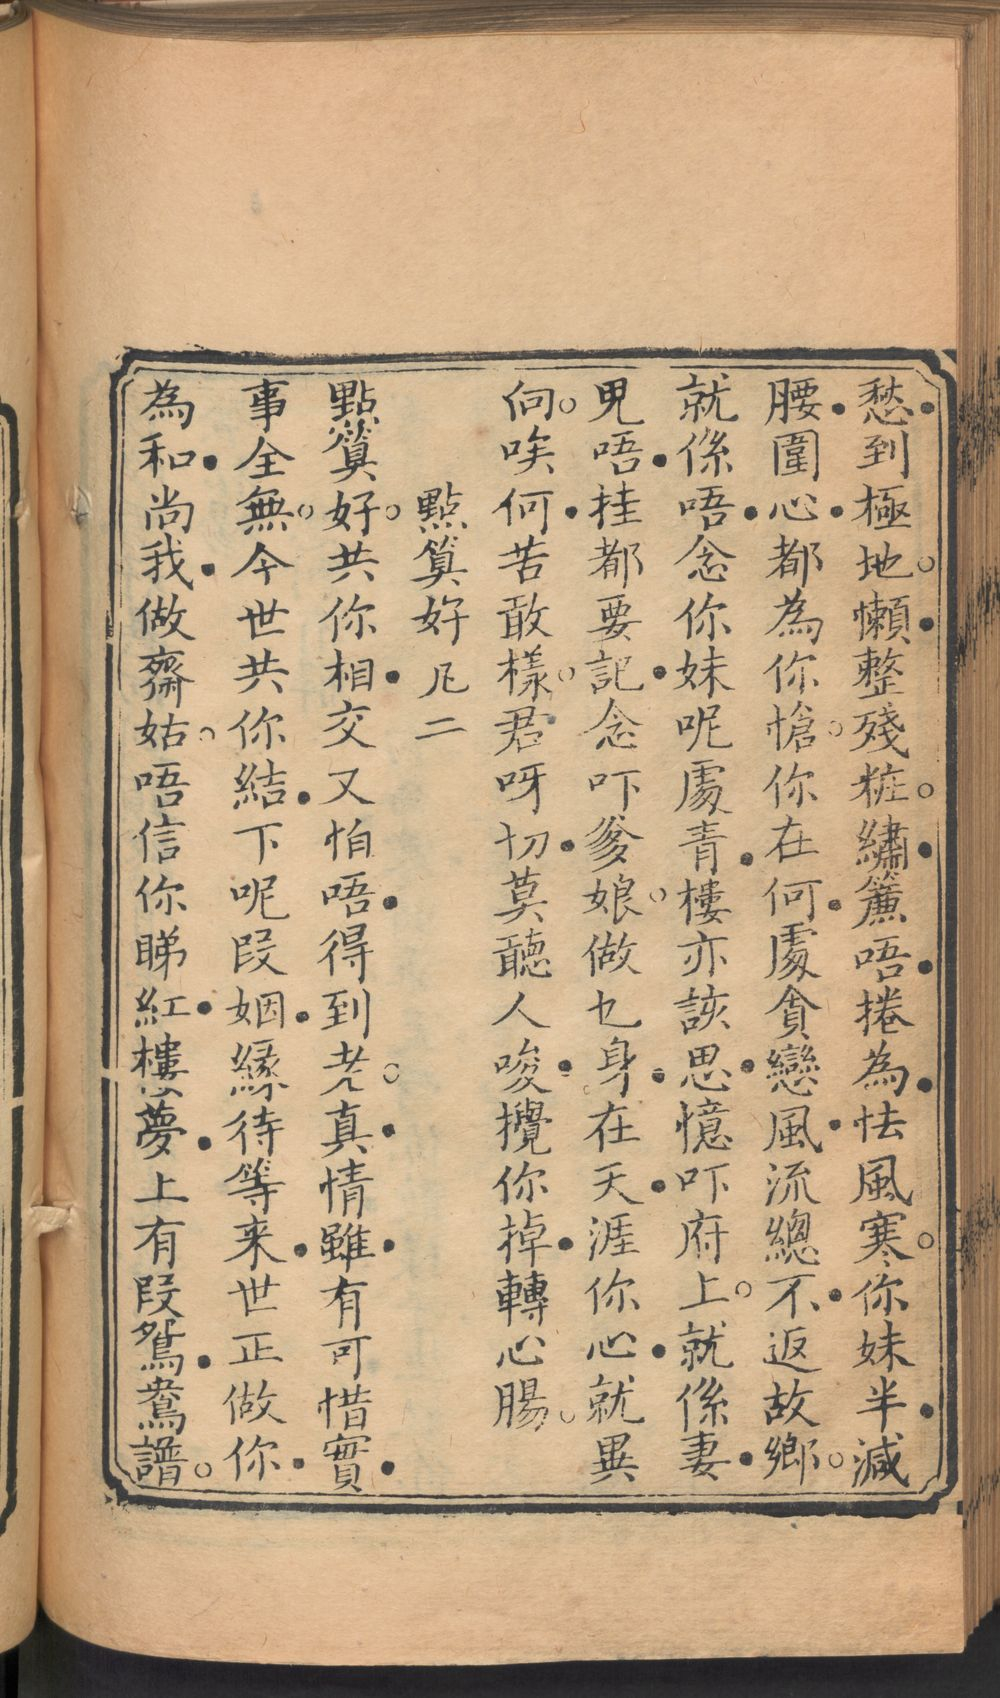 愁到極地懶整殘粧繡簾唔捲為怯風寒你妹半減
腰圍心都為你愴你在何處貪戀風流總不返故鄉
就係唔念你妹呢處青樓亦該思憶吓府上就係妻
兒唔挂都要記念吓爹娘做乜身在天涯你心就異
向唉何苦敢樣君呀切莫聽人唆攪你掉轉心腸
點算好 凡二
點算好共你相交又怕唔得到老真情雖有可惜實
事全無今世共你結下呢段姻緣待等来世正做你
為和尚我做齋姑唔信你睇紅樓夢上有段鴛鴦譜